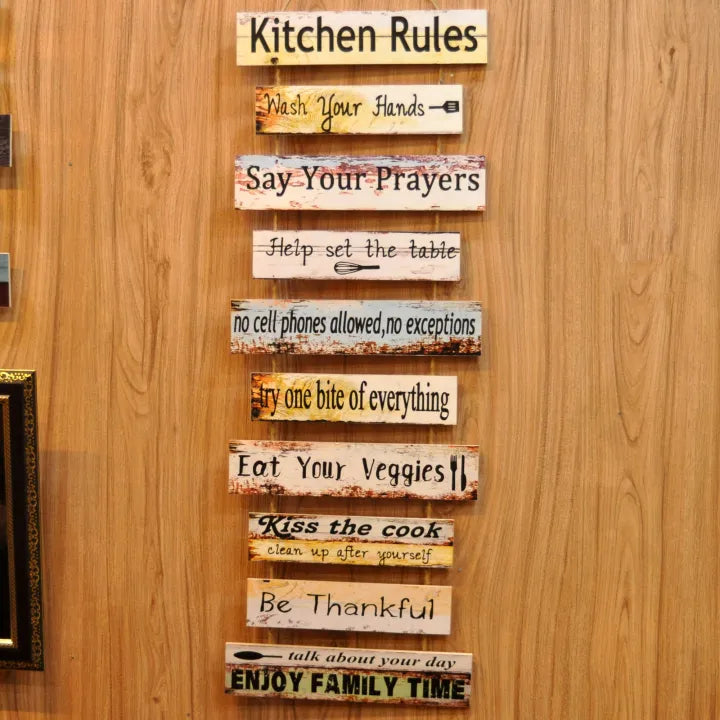 Kitchen Rules
Wash Your Hands
Say Your Prayers
Help set the table
no cell phones allowed,no exceptions
try one bite of everything
Eat Your Veggies
Kiss the cook
clean up after yourself
Be Thankful
talk about your day
ENJOY FAMILY TIME